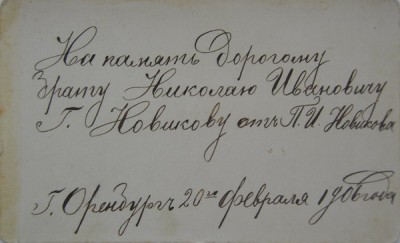 На память Дорогому
Брату Николаю Ивановичу
Г. Новикову отъ П. И. Новикова
Г. Оренбургъ 20го февраля 1906 года